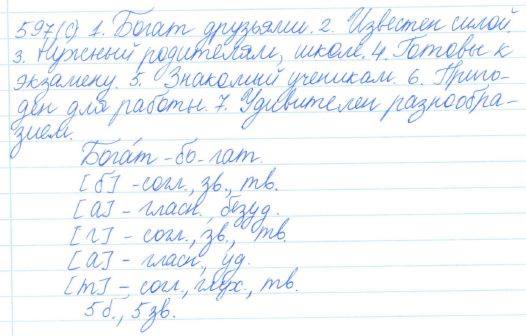 597(с) 1. Богат друзьями. 2. Известен силой.
3. Нужный родителям, школе. 4. Готовы к
экзамену. 5. Знакомый ученикам. 6. Приго-
ден для работы. 7. Удивителен разнообра-
зием.
Бога́т - бо-гат.
[б] - согл., зв., тв.
[а] - гласн., безуд.
[г] - согл., зв., тв.
[а] - гласн., уд.
[т] - согл., глух., тв.
5 б., 5 зв.